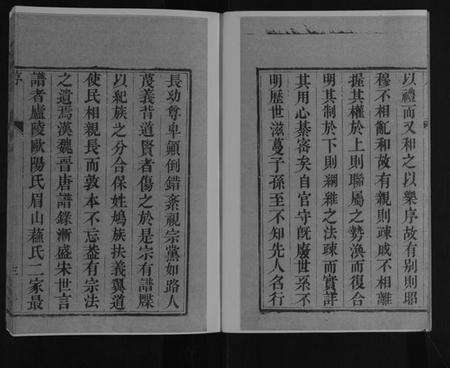 以禮而又和之以樂序故有别則昭
穆不相亂和故有親則疎戚不相離
握其權於上則聯屬之勢渙而復合
明其制於下則綱維之法疎而實詳
其用心綦密矣自官守旣廢世系不
明歷世滋蔓子孫至不知先人名行
長幼尊卑顛倒錯紊視宗黨如路人
蔑義背道賢者傷之於是宗有譜牒
以紀族之分合保姓鳩族扶義翼道
使民相親長而敦本不忘蓋有宗法
之遺焉漢魏晉唐譜錄漸盛宋世言
譜者廬陵歐陽氏眉山蘇氏二家最
序
三